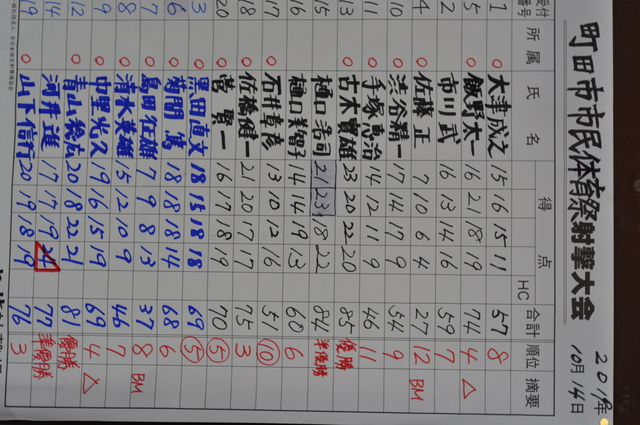 町田市市民体育祭射撃大会
2019年
10月14日
受付番号 所属 氏名 得点 HC 合計 順位 摘要
1 大津成之 15 16 15 11 57 8
5 ○ 飯野太一 16 21 18 19 74 4 △
2 市川武 16 13 14 16 59 7
4 ○ 佐藤正 7 10 6 4 27 12 BM
10 ○ 渋谷精一 17 14 17 9 54 9
11 ○ 手塚恵治 14 12 11 9 46 11
13 ○ 古木實雄 23 20 22 20 85 優勝
15 樋口浩司 21 23 18 22 84 準優勝
16 樋口美智子 14 14 19 13 60 6
17 ○ 石井孝彦 13 10 12 16 51 ⑩
18 ○ 佐藤健一 21 20 17 17 75 3
20 ○ 菅賢一 16 17 18 19 70 ⑤
3 ○ 黒田直文 18 15 18 18 69 ⑤
6 ○ 菊間篤 18 18 18 14 68 6
7 ○ 島田征雄 7 9 8 13 37 8 BM
8 ○ 清水英雄 15 12 10 9 46 7
9 ○ 中里光久 19 16 15 19 69 4 △
12 ○ 青山 20 18 22 21 81 優勝
14 ○ 河井進 17 17 19 24 77 準優勝
19 ○ 山下信行 20 19 18 19 76 3